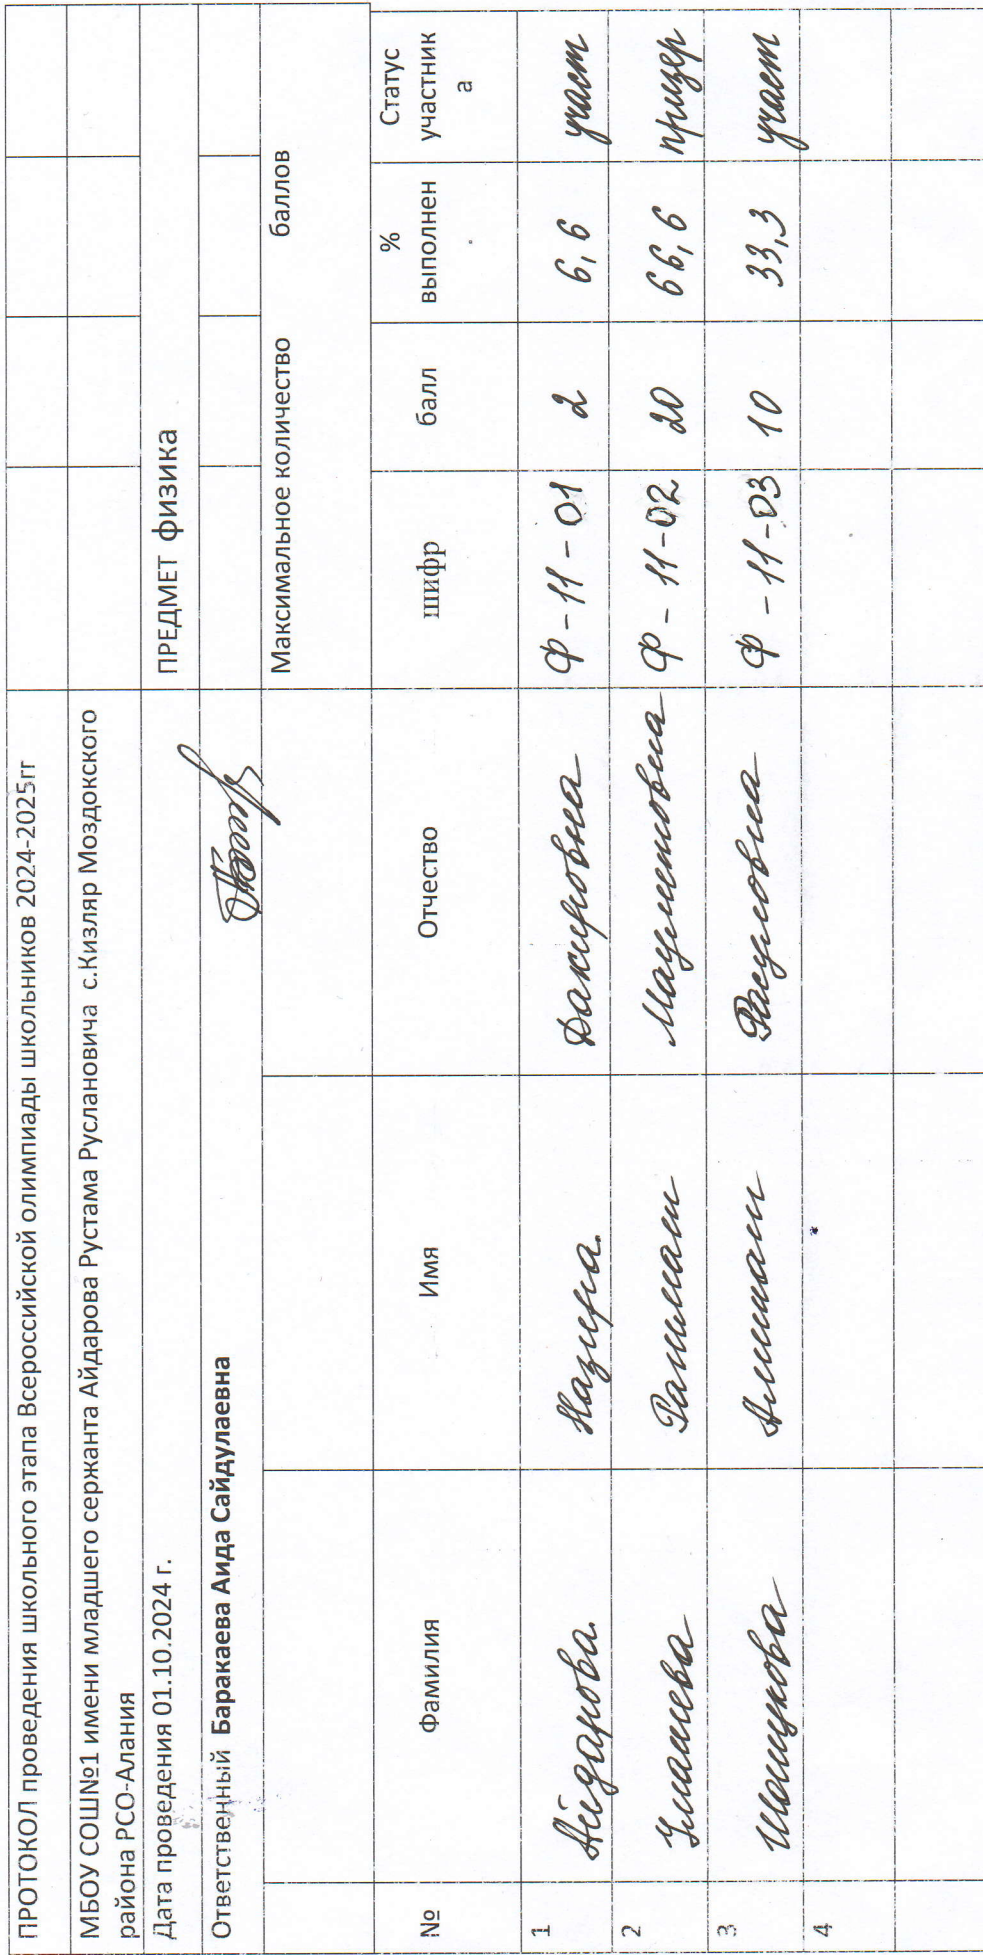 ПРОТОКОЛ проведения школьного этапа Всероссийской олимпиады школьников 2024-2025гг
МБОУ СОШ№1 имени младшего сержанта Айдарова Рустама Руслановича с.Кизляр Моздокского
района РСО-Алания
Дата проведения 01.10.2024 г. ПРЕДМЕТ физика
Ответственный Баракаева Аида Сайдулаевна
Максимальное количество баллов
№ Фамилия Имя Отчество шифр балл % выполнен Статус участник а
1 Айдарова. Назира. Закировна Ф-11-01 2 6,6 участ
2 Умашева 20 Ф-11-02 66,6 призер
3 Расуловна Ф-11-03 10 33,3 участ
4